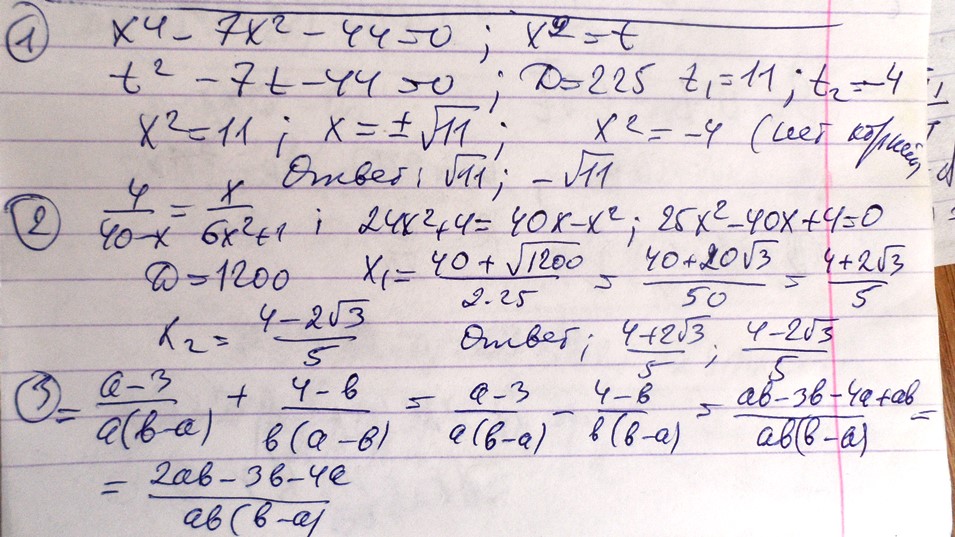 ① x⁴ - 7x² - 44 = 0 ; x² = t
t² - 7t - 44 = 0 ; D = 225 t₁ = 11 ; t₂ = -4
x² = 11 ; x = ±√11 ; x² = -4 (нет корней)
Ответ: √11 ; -√11
② 4/(40-x) = x/(6x²+1) ; 24x²+4 = 40x-x² ; 25x²-40x+4=0
D = 1200 x₁ = (40+√1200)/(2·25) = (40+20√3)/50 = (4+2√3)/5
x₂ = (4-2√3)/5 Ответ: (4+2√3)/5 ; (4-2√3)/5
③ = (a-3)/(a(в-a)) + (4-в)/(в(a-в)) = (a-3)/(a(в-a)) - (4-в)/(в(в-a)) = (aв-3в-4a+aв)/(aв(в-a)) =
= (2aв-3в-4a)/(aв(в-a)